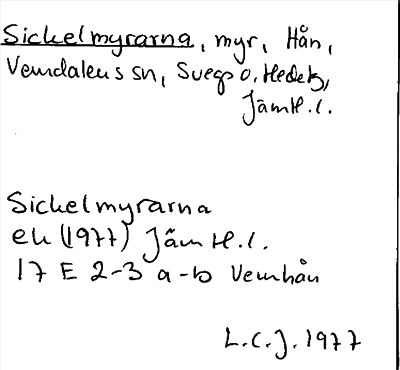 Sickelmyrarna, myr, Hån,
Vemdalens sn, Svegs o. Hedetz,
Jämtl. l.
Sickelmyrarna
ek (1977) Jämtl. l.
17 E 2-3 a-b Vemhån
L.C.J. 1977